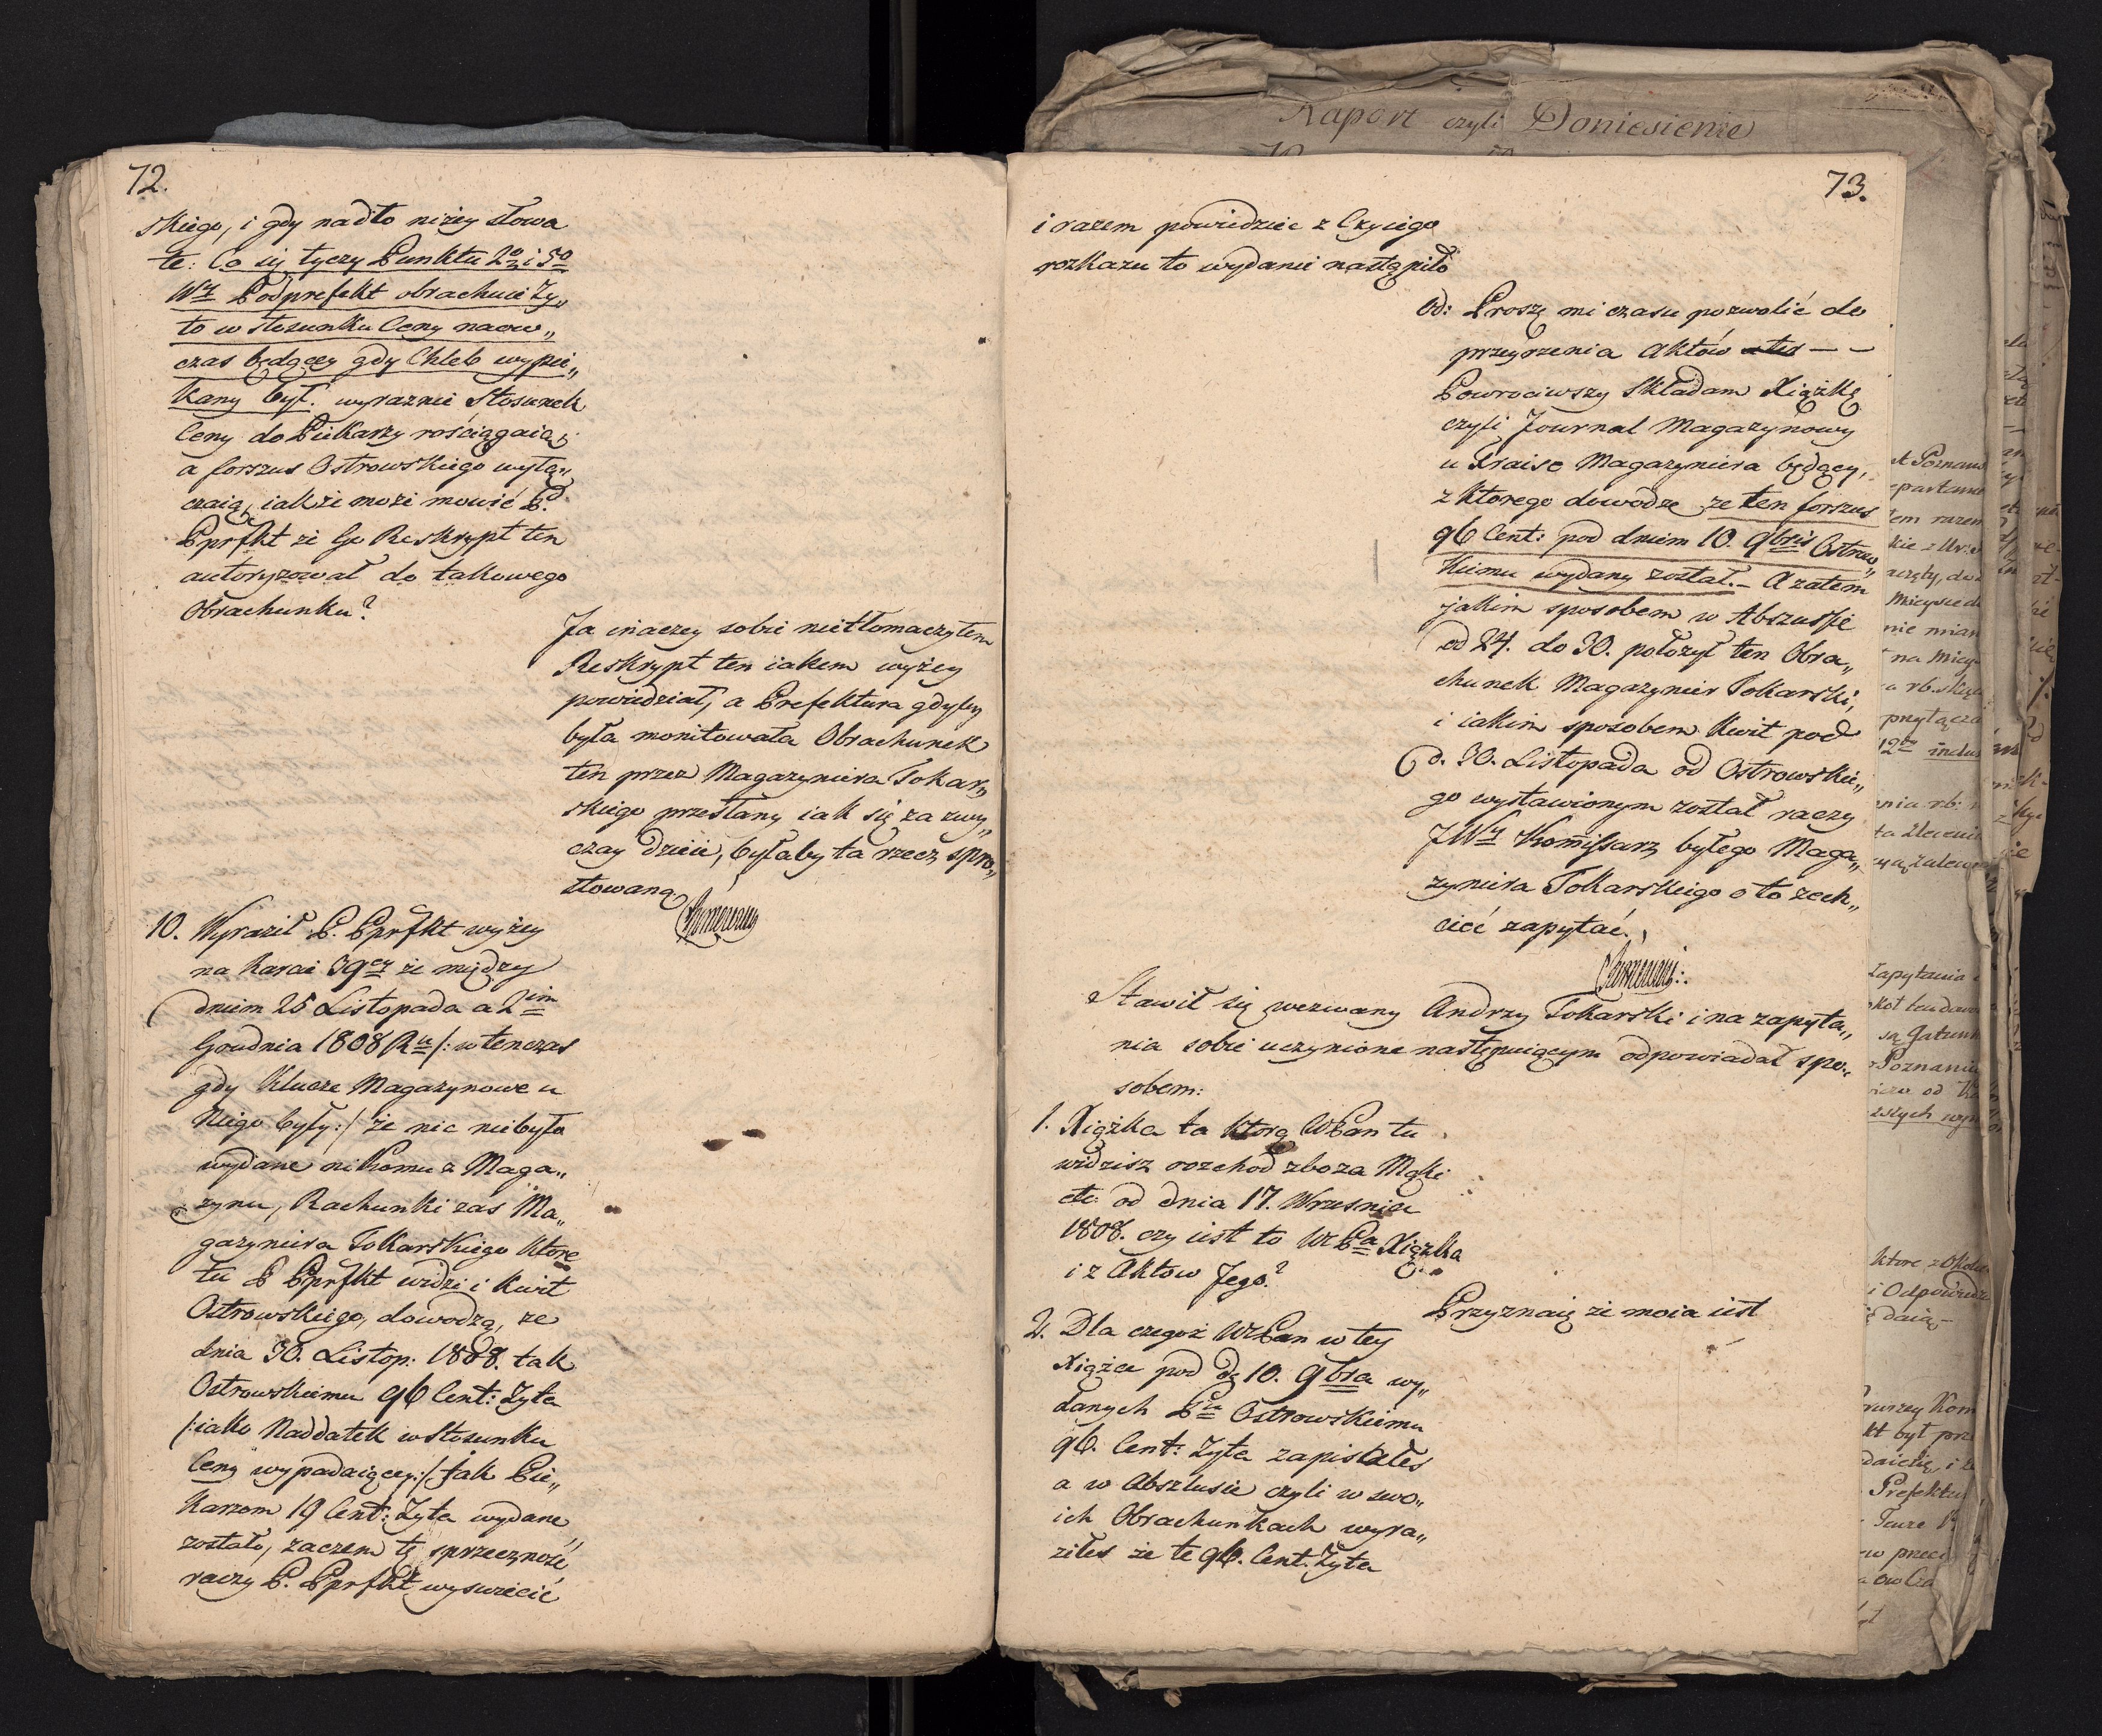 72.
skiego, i gdy nadto niżey słowa
te: Co się tyczy Punktu 2º i 5º
Wy Podprefekt obrachuie Zy„
to w stosunku Ceny naow„
czas będącey gdy Chleb wypie„
kany był. wyraznie stosunek
Ceny do Piekarzy rościągaią,
a forszus Ostrowskiego wyłą„
czaią, iakże może mowić P.
Pprfkt że Go Reskrypt ten
autoryzował do takowego
Obrachunku?
Ja inaczey sobie nietłomaczyłem
Reskrypt ten iakem wyżey
powiedział, a Prefektura gdyby
była monitowała Obrachunek
ten przez Magazyniera Tokar„
skiego przesłany iak się za zwy„
czay dzieie, byłaby ta rzecz spro„
stowaną.
10. Wyraził P. Pprfkt wyżey
na karcie 39ey że między
dniem 25 Listopada a 2im
Grudnia 1808 Ru /: w tenczas
gdy Klucze Magazynowe u
Niego były :/ że nic niebyło
wydane nikomu z Maga„
zynu, Rachunki zas Ma„
gazyniera Tokarskiego ktore
tu P Pprfkt widzi i kwit
Ostrowskiego, dowodzą, ze
dnia 30. Listop: 1808. tak
Ostrowskiemu 96 Cent: Zyta
/: iako Naddatek w stosunku
Ceny wypadaiącey :/ jak Pie„
karzom 19 Cent: Zyta wydane
zostało, zaczem tę sprzeczność
raczy P. Pprfkt wyswiecić
73.
i razem powiedziec z Czyiego
rozkazu to wydanie nastąpiło
Od: Proszę mi czasu pozwolić do
przeyrzenia Aktów
Powrociwszy składam Xiążkę
czyli Journal Magazynowy
u Kraise Magazyniera będący,
z ktorego dowodze ze ten forszus
96 Cent: pod dniem 10. 9bris Ostrow„
skiemu wydany został. – A zatem
jakim sposobem w Abszlussie
od 24. do 30. położył ten Obra„
chunek Magazynier Tokarski,
i iakim sposobem Kwit pod
d. 30. Listopada od Ostrowskie„
go wystawionym został raczy
JWy Kommissarz byłego Maga„
zyniera Tokarskiego o to zech„
cieć zapytać.
Stawił się wezwany Andrzy Tokarski i na zapyta„
nia sobie uczynione następuiącym odpowiadał spo„
sobem:
1. Xiążka ta ktorą WPan tu
widzisz rozchod zboza Mąki
etc: od dnia 17. Wrzesnia
1808. czy iest to WPa Xiążka
i z Aktow Jego?
Przyznaię że moia iest
2. Dla czegoż WPan w tey
Xiążce pod dz 10. 9bra wy„
danych Pu Ostrowskiemu
96. Cent: Zyta zapisałes
a w Abszlusie czyli w swo„
ich Obrachunkach wyra„
ziłes że te 96. Cent. Zyta
Raport czyli Doniesienie